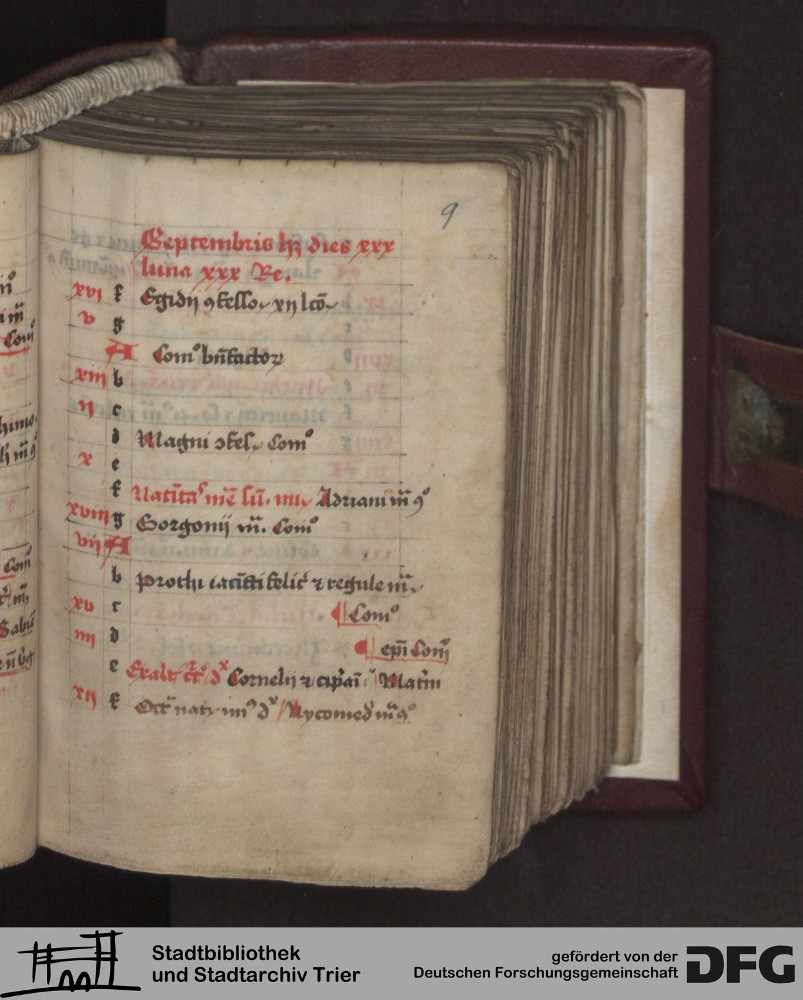 9
Septembris hꝫ dies xxx
luna xxx Re.
xvi f Egidij ↄfesso. xij lcō
v g
A Com⁰ bn̄factoꝝ
xiij b
ij c
d Magni ↄfes. Com⁰
x e
f Natīta mē Adriani m̄
xviij g Gorgonij m̄. Com⁰
vij A
b prothi iacīcti felic ⁊ regule m̄
xv c Com⁰
iiij d ep̄i Com
e Exalt Cornelij ⁊ cip̄ai
xij f Oct nat Nycomed m̄
Com
Com
Stadtbibliothek
und Stadtarchiv Trier
gefördert von der
Deutschen Forschungsgemeinschaft
DFG